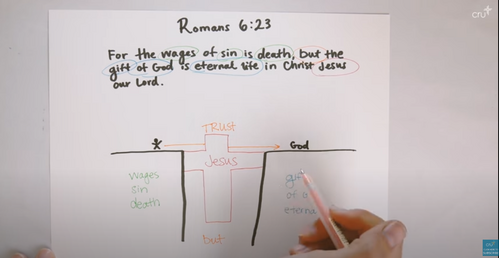 cru
Romans 6:23
For the wages of sin is death, but the
gift of God is eternal life in Christ Jesus
our Lord.
TRUST
God
Jesus
wages
sin
death
gift
of
eterna
but